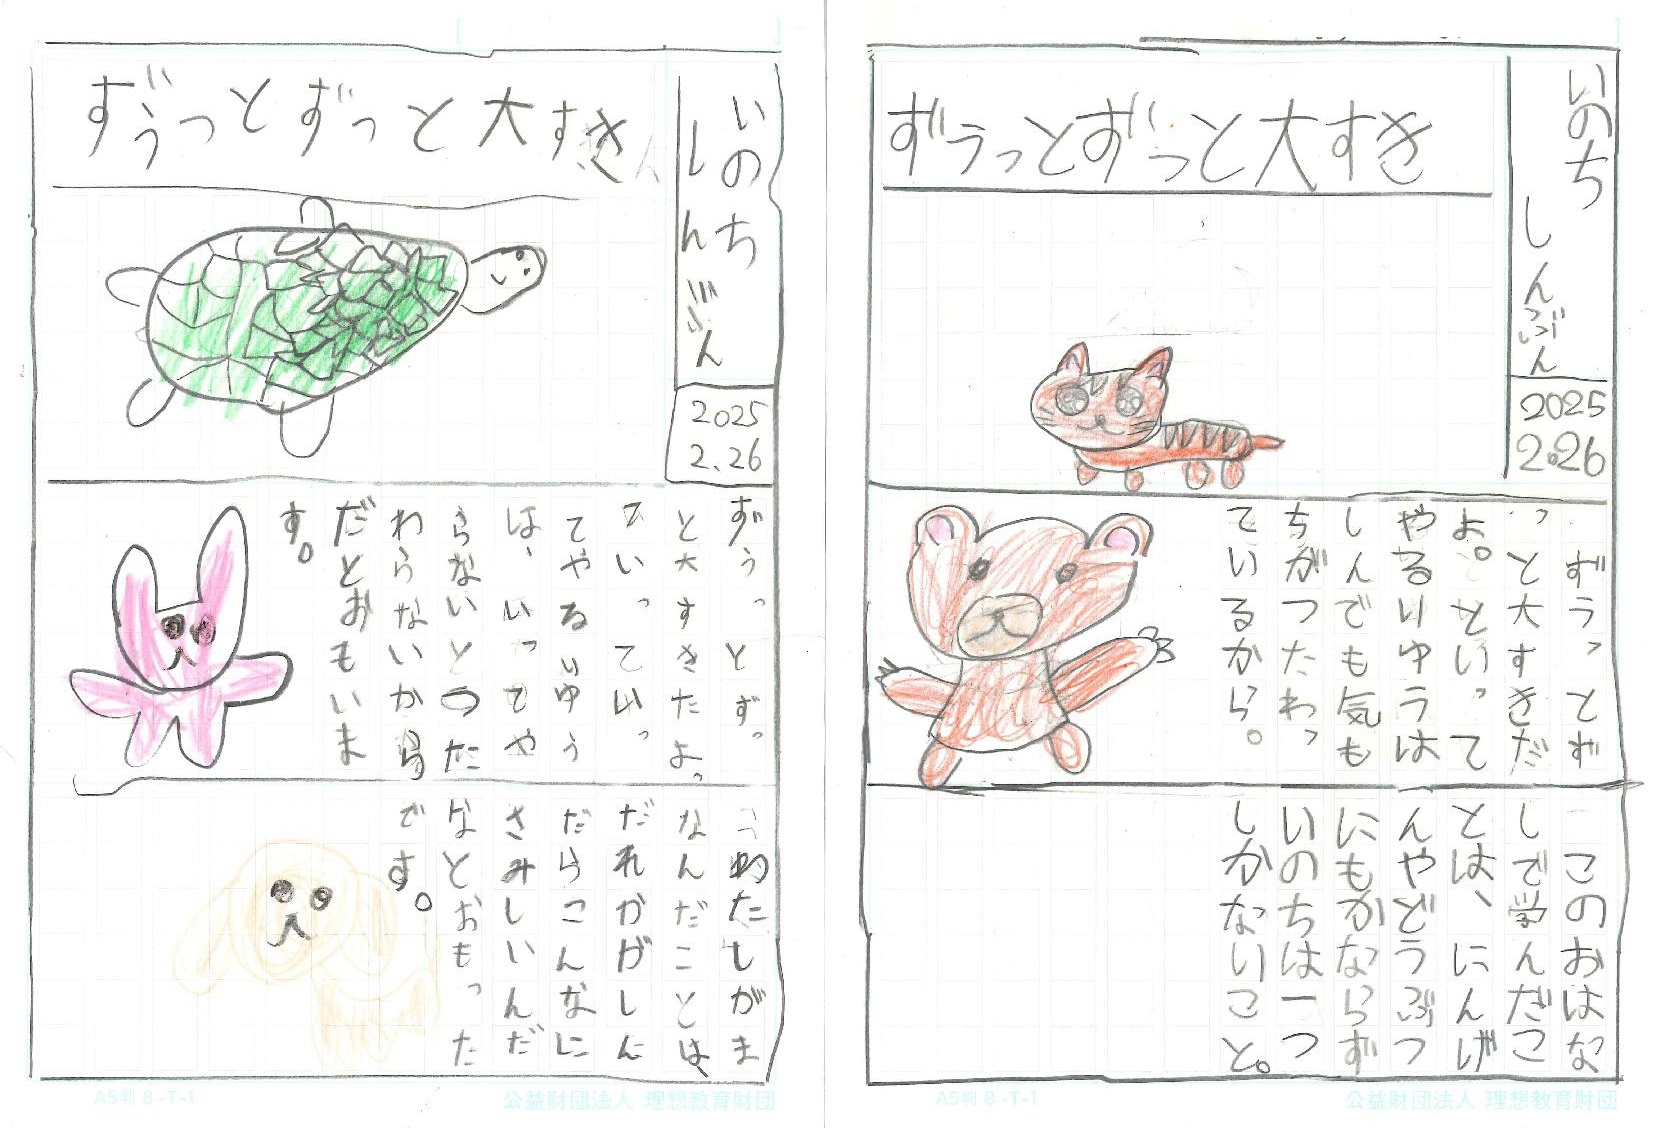 いのち
しんぶん
2025
2.26
ずうっとずっと大すき
ずうっとずっ
と大すきたよ。
ていっていっ
てやるりゆう
は、いってや
らないとつた
わらないから
だとおもいま
す。
わたしがま
なんだことは、
だれかがしん
だらこんなに
さみしいんだ
なとおもった
です。
A5判 8-T-1
公益財団法人 理想教育財団
いのち
しんぶん
2025
2.26
ずうっとずっと大すき
ずうっとず
っと大すきだ
よ。といって
やるりゆうは
しんでも気も
ちがつたわっ
ているから。
このおはな
しで学んだこ
とは、にんげ
んやどうぶつ
にもかならず
いのちは一つ
しかないこと。
A5判 8-T-1
公益財団法人 理想教育財団